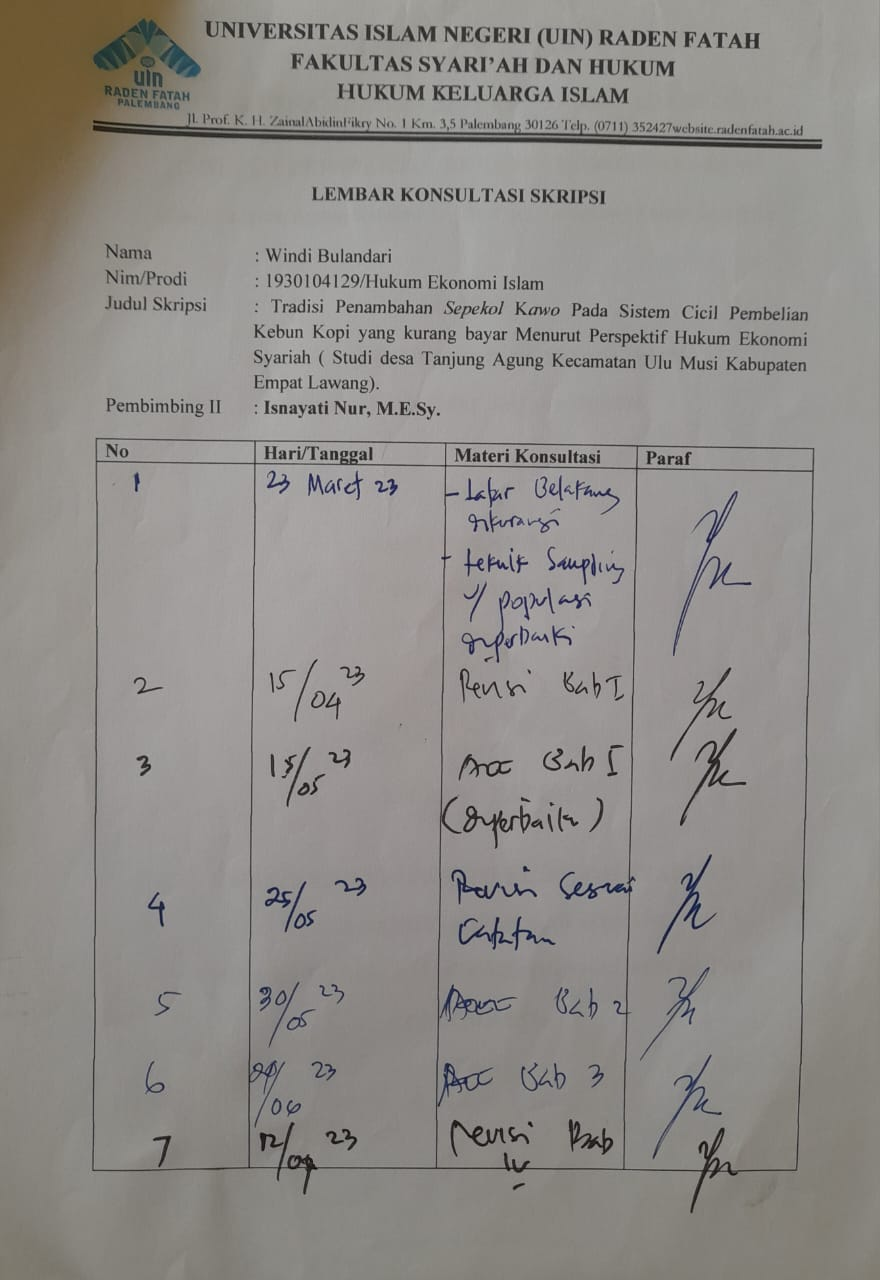 UNIVERSITAS ISLAM NEGERI (UIN) RADEN FATAH
FAKULTAS SYARI'AH DAN HUKUM
HUKUM KELUARGA ISLAM
uin
RADEN FATAH
PALEMBANG
Jl. Prof. K. H. ZainalAbidinFikry No. 1 Km. 3,5 Palembang 30126 Telp. (0711) 352427website.radenfatah.ac.id
LEMBAR KONSULTASI SKRIPSI
Nama : Windi Bulandari
Nim/Prodi : 1930104129/Hukum Ekonomi Islam
Judul Skripsi : Tradisi Penambahan Sepekol Kawo Pada Sistem Cicil Pembelian
Kebun Kopi yang kurang bayar Menurut Perspektif Hukum Ekonomi
Syariah ( Studi desa Tanjung Agung Kecamatan Ulu Musi Kabupaten
Empat Lawang).
Pembimbing II : Isnayati Nur, M.E.Sy.
No Hari/Tanggal Materi Konsultasi Paraf
1 23 Maret 23 - Latar Belakang
dikurangi
- teknik Sampling
y/ populasi
diperbaiki
2 15/04 23 Revisi Bab I
3 15/05 23 Acc Bab I
(diperbaiki)
4 25/05 23 Revisi Sesuai
Catatan
5 30/05 23 Acc Bab 2
6 /06 23 Acc Bab 3
7 12/ 23 Revisi Bab
IV